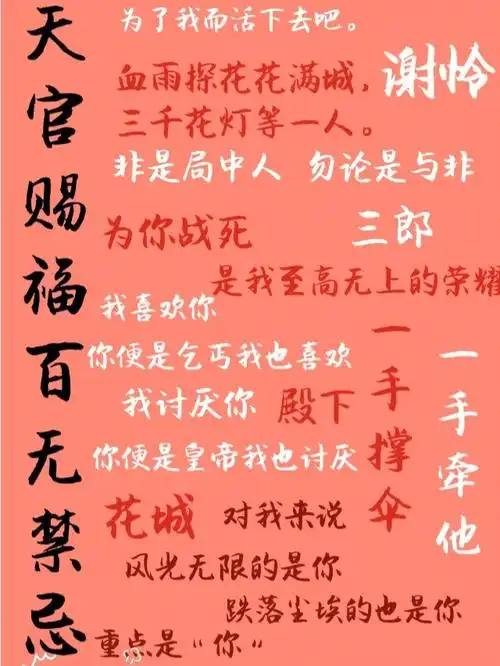 天官赐福百无禁忌
为了我而活下去吧。
血雨探花花满城，
谢怜
三千花灯等一人。
非是局中人 勿论是与非
为你战死
三郎
是我至高无上的荣耀
我喜欢你
你便是乞丐我也喜欢
我讨厌你
殿下
你便是皇帝我也讨厌
一手撑伞
一手牵他
花城
对我来说
风光无限的是你
跌落尘埃的也是你
重点是“你”